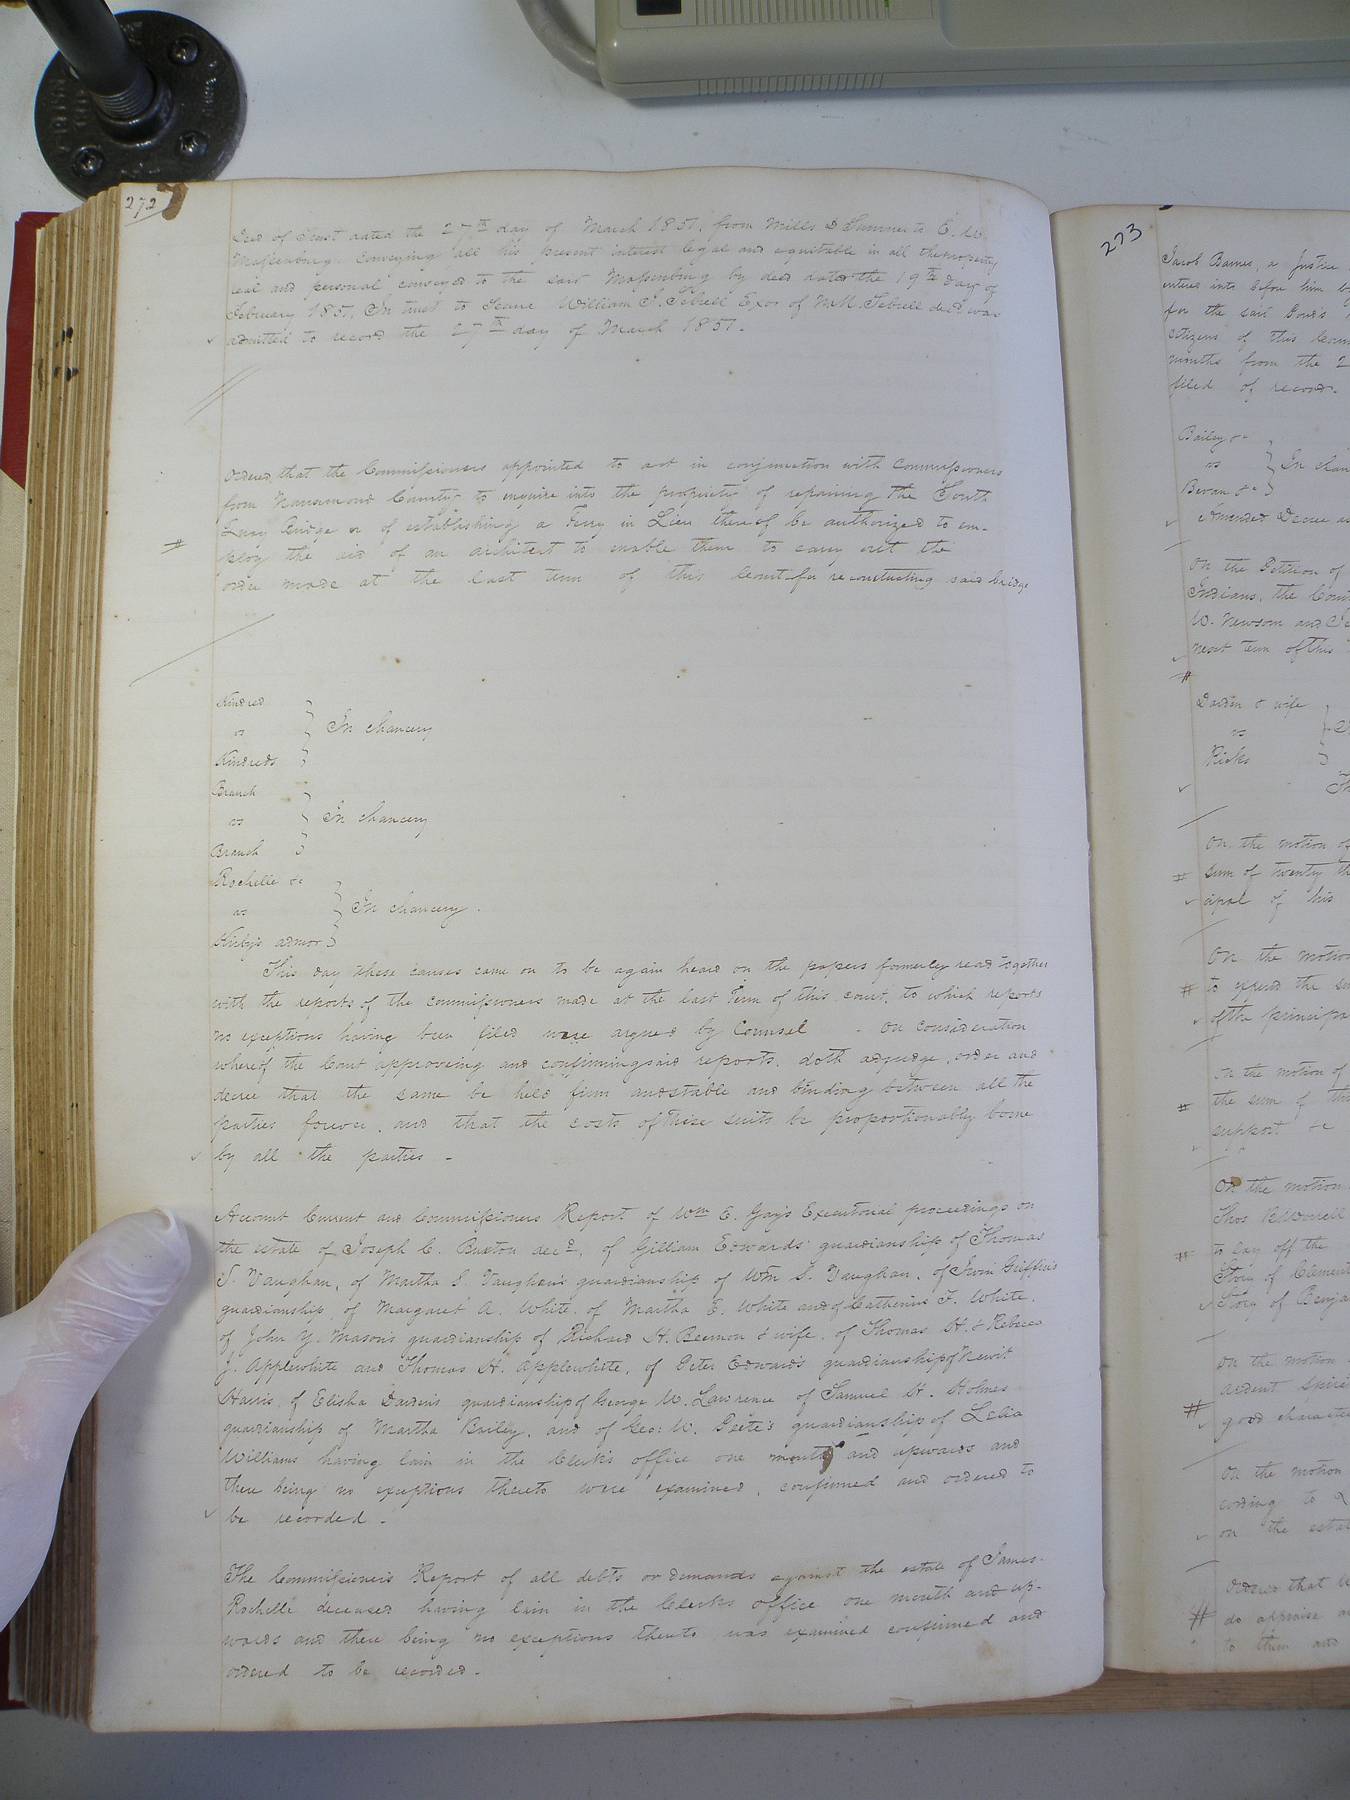 272
Deed of Trust dated the 27th day of March 1851, from Mills D Summer to E. W.
Massenburg Conveying all his present interest legal and equitable in all the property
real and personal conveyed to the said Massenburg by deed dated the 19th day of
February 1851, In trust to Secure William J. Sebrell Exor of N.M. Sebrell decd. was
admitted to record the 27th day of March 1851.
Ordered that the Commissioners appointed to act in conjunction with Commissioners
from Nansemond County to enquire into the propriety of repairing the South
Quay Bridge or of establishing a Ferry in Lieu thereof be authorized to em-
ploy the aid of an architect to enable them to carry out the
order made at the last term of this Court for reconstructing said bridge
Kindred
vs
In chancery
Kindreds
Branch
vs
In chancery
Branch
Rochelle &c
vs
In chancery.
Kirby's admor
This day these causes came on to be again heard on the papers formerly read together
with the reports of the commissioners made at the last Term of this court, to which reports
no exceptions having been filed were argued by Counsel - On consideration
whereof the Court approveing and confirming said reports, doth adjudge, order and
decree that the same be held firm and stable and binding between all the
parties forever, and that the costs of these suits be proportionably borne
by all the parties -
Account Current and Commissioners Report of Wm E. Gay's Executorial proceedings on
the estate of Joseph C. Buxton decd, of Gilliam Edwards' guardianship of Thomas
J. Vaughan, of Martha S. Vaughan's guardianship of Wm S. Vaughan, of Irvin Griffin's
guardianship of Margaret A. White, of Martha E. White and of Catherine F. White,
of John Y. Mason's guardianship of Richard H. Beemon & wife, of Thomas H. & Rebecca
J. Applewhite and Thomas H. Applewhite, of Peter Edwards guardianship of Newit
Harris, of Elisha Darden's guardianship of George W. Lawrence of Samuel H. Holmes
guardianship of Martha Bailey, and of Geo: W. Peete's guardianship of Lelia
Williams having lain in the Clerks office one month and upwards and
there being no exceptions thereto were examined, confirmed and ordered to
be recorded -
The Commissioners Report of all debts or demands against the estate of James
Rochelle deceased having lain in the Clerks office one month and up-
wards and there being no exceptions thereto was examined confirmed and
ordered to be recorded -
273
Jacob Barnes, a Justice
entered into before him
for the said
citizens of this
months from the 2
filed of record.
Bailey &c
vs
In chan
Bevan &c
Amended Decree
On the Petition of
Indians, the Cour
W. Newsom and
next term of this
Darden & wife
vs
Ricks
On the motion of
sum of twenty
cipal of his
On the motion
to spend the
of the principa
On the motion of
the sum of
support &c
On the motion
Thos B Worrell
to lay off the
Story of Clement
Story of Benja
On the motion
ardent spiri
good character
On the motion
cording to
on the esta
Ordered that
do appraise
to them and